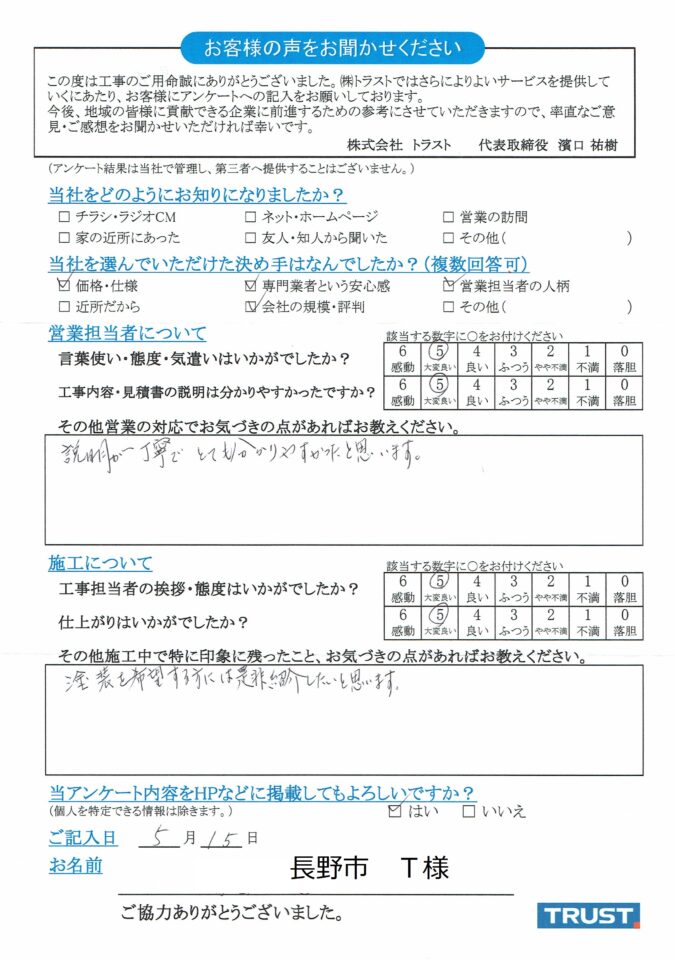 お客様の声をお聞かせください
この度は工事のご用命誠にありがとうございました。㈱トラストではさらによりよいサービスを提供して
いくにあたり、お客様にアンケートへの記入をお願いしております。
今後、地域の皆様に貢献できる企業に前進するための参考にさせていただきますので、率直なご意
見・ご感想をお聞かせいただければ幸いです。
株式会社 トラスト 代表取締役 濱口 祐樹
(アンケート結果は当社で管理し、第三者へ提供することはございません。)
当社をどのようにお知りになりましたか?
☐ チラシ・ラジオCM ☐ ネット・ホームページ ☐ 営業の訪問
☐ 家の近所にあった ☐ 友人・知人から聞いた ☐ その他( )
当社を選んでいただけた決め手はなんでしたか?(複数回答可)
☑ 価格・仕様 ☑ 専門業者という安心感 ☑ 営業担当者の人柄
☐ 近所だから ☑ 会社の規模・評判 ☐ その他( )
営業担当者について 該当する数字に○をお付けください
言葉使い・態度・気遣いはいかがでしたか? 6 ⑤ 4 3 2 1 0
感動 大変良い 良い ふつう やや不満 不満 落胆
工事内容・見積書の説明は分かりやすかったですか? 6 ⑤ 4 3 2 1 0
感動 大変良い 良い ふつう やや不満 不満 落胆
その他営業の対応でお気づきの点があればお教えください。
説明が丁寧で とても分かりやすかったと思います。
施工について 該当する数字に○をお付けください
工事担当者の挨拶・態度はいかがでしたか? 6 ⑤ 4 3 2 1 0
感動 大変良い 良い ふつう やや不満 不満 落胆
仕上がりはいかがでしたか? 6 ⑤ 4 3 2 1 0
感動 大変良い 良い ふつう やや不満 不満 落胆
その他施工中で特に印象に残ったこと、お気づきの点があればお教えください。
塗装を希望する方には是非紹介したいと思います。
当アンケート内容をHPなどに掲載してもよろしいですか?
(個人を特定できる情報は除きます。) ☑ はい ☐ いいえ
ご記入日 5 月 15 日
お名前 長野市 T様
ご協力ありがとうございました。
TRUST.